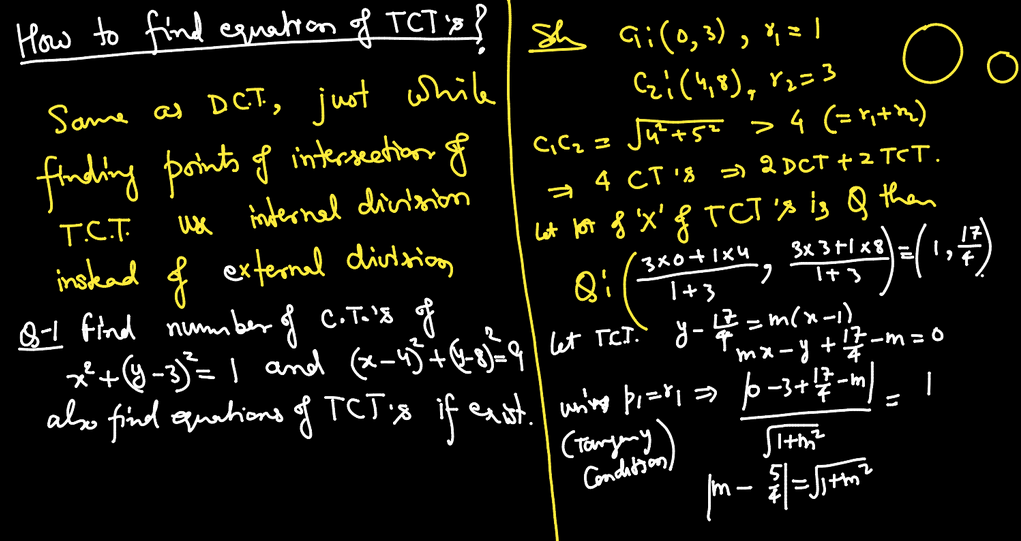 How to find equation of TCT's?
Same as D.C.T., just while
finding points of intersection of
T.C.T. use internal division
instead of external division
Q-1 Find number of C.T.'s of
x²+(y-3)²=1 and (x-4)²+(y-8)²=9
also find equations of TCT's if exist.
Sol C₁:(0,3), r₁=1
C₂:(4,8), r₂=3
C₁C₂ = √4²+5² > 4 (=r₁+r₂)
⇒ 4 CT's ⇒ 2 DCT + 2 TCT.
Let pt of 'X' of TCT's is Q then
Q:(3×0+1×4/1+3, 3×3+1×8/1+3)=(1, 17/4)
Let TCT. y-17/4=m(x-1)
mx-y+17/4-m=0
using p₁=r₁ ⇒ |0-3+17/4-m|/√1+m² = 1
(Tangency
Condition)
|m-5/4|=√1+m²